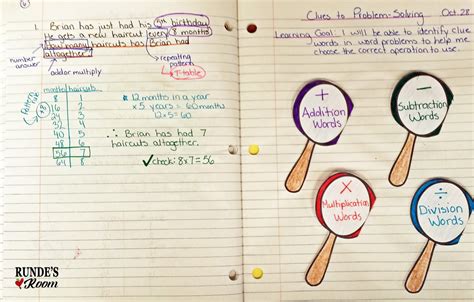 1. Brian has just had his 5th birthday.
He gets a new haircut every 8 months.
How many haircuts has Brian had
altogether?
number
answer
add or multiply
repeating
pattern
T-table
months haircuts
8 1
16 2
24 3
32 4
40 5
48 6
56 7
64 8
12 months in a year
x 5 years = 60 months
12x5 = 60
∴ Brian has had 7
haircuts altogether.
✓check: 8x7=56
RUNDE'S
Room
Clues to Problem-Solving Oct. 28
Learning Goal: I will be able to identify clue
words in word problems to help me
choose the correct operation to use.
+
Addition
Words
-
Subtraction
Words
×
Multiplication
Words
÷
Division
Words